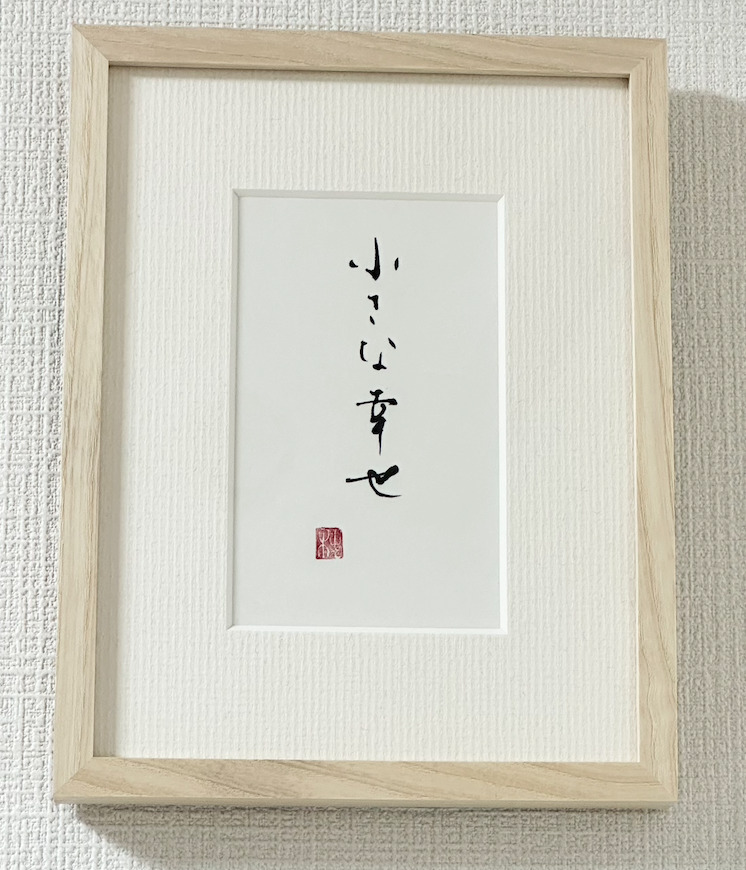 小さな幸せ